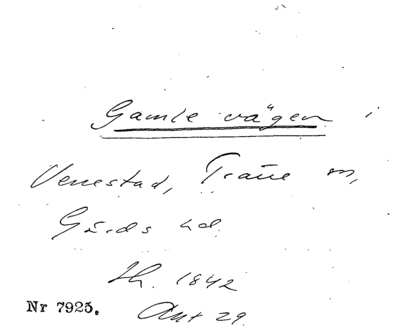 Gamle vägen i
Venestad, Träne sn,
Gärds hd.
Th. 1842
Nr 7925.
Ant 29.